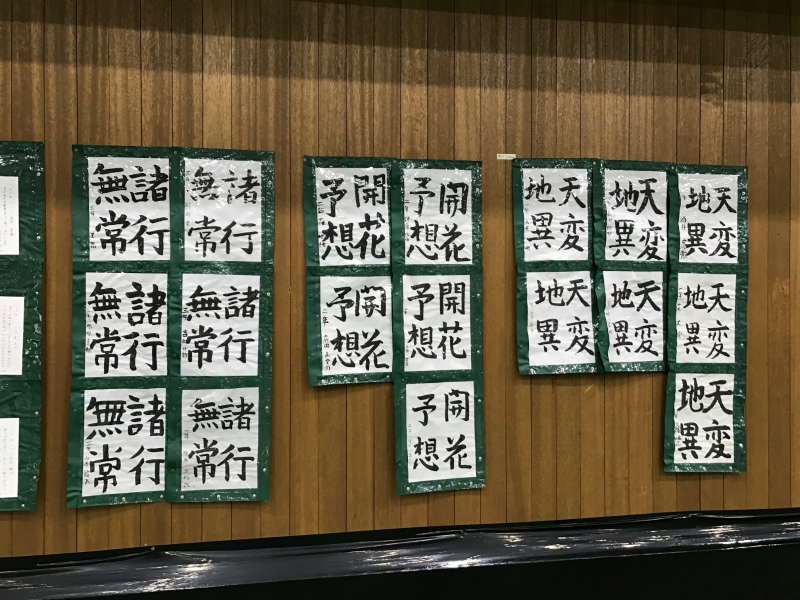 諸行
無常
諸行
無常
諸行
無常
諸行
無常
諸行
無常
諸行
無常
開花
予想
開花
予想
開花
予想
開花
予想
開花
予想
天変
地異
天変
地異
天変
地異
天変
地異
天変
地異
天変
地異
天変
地異